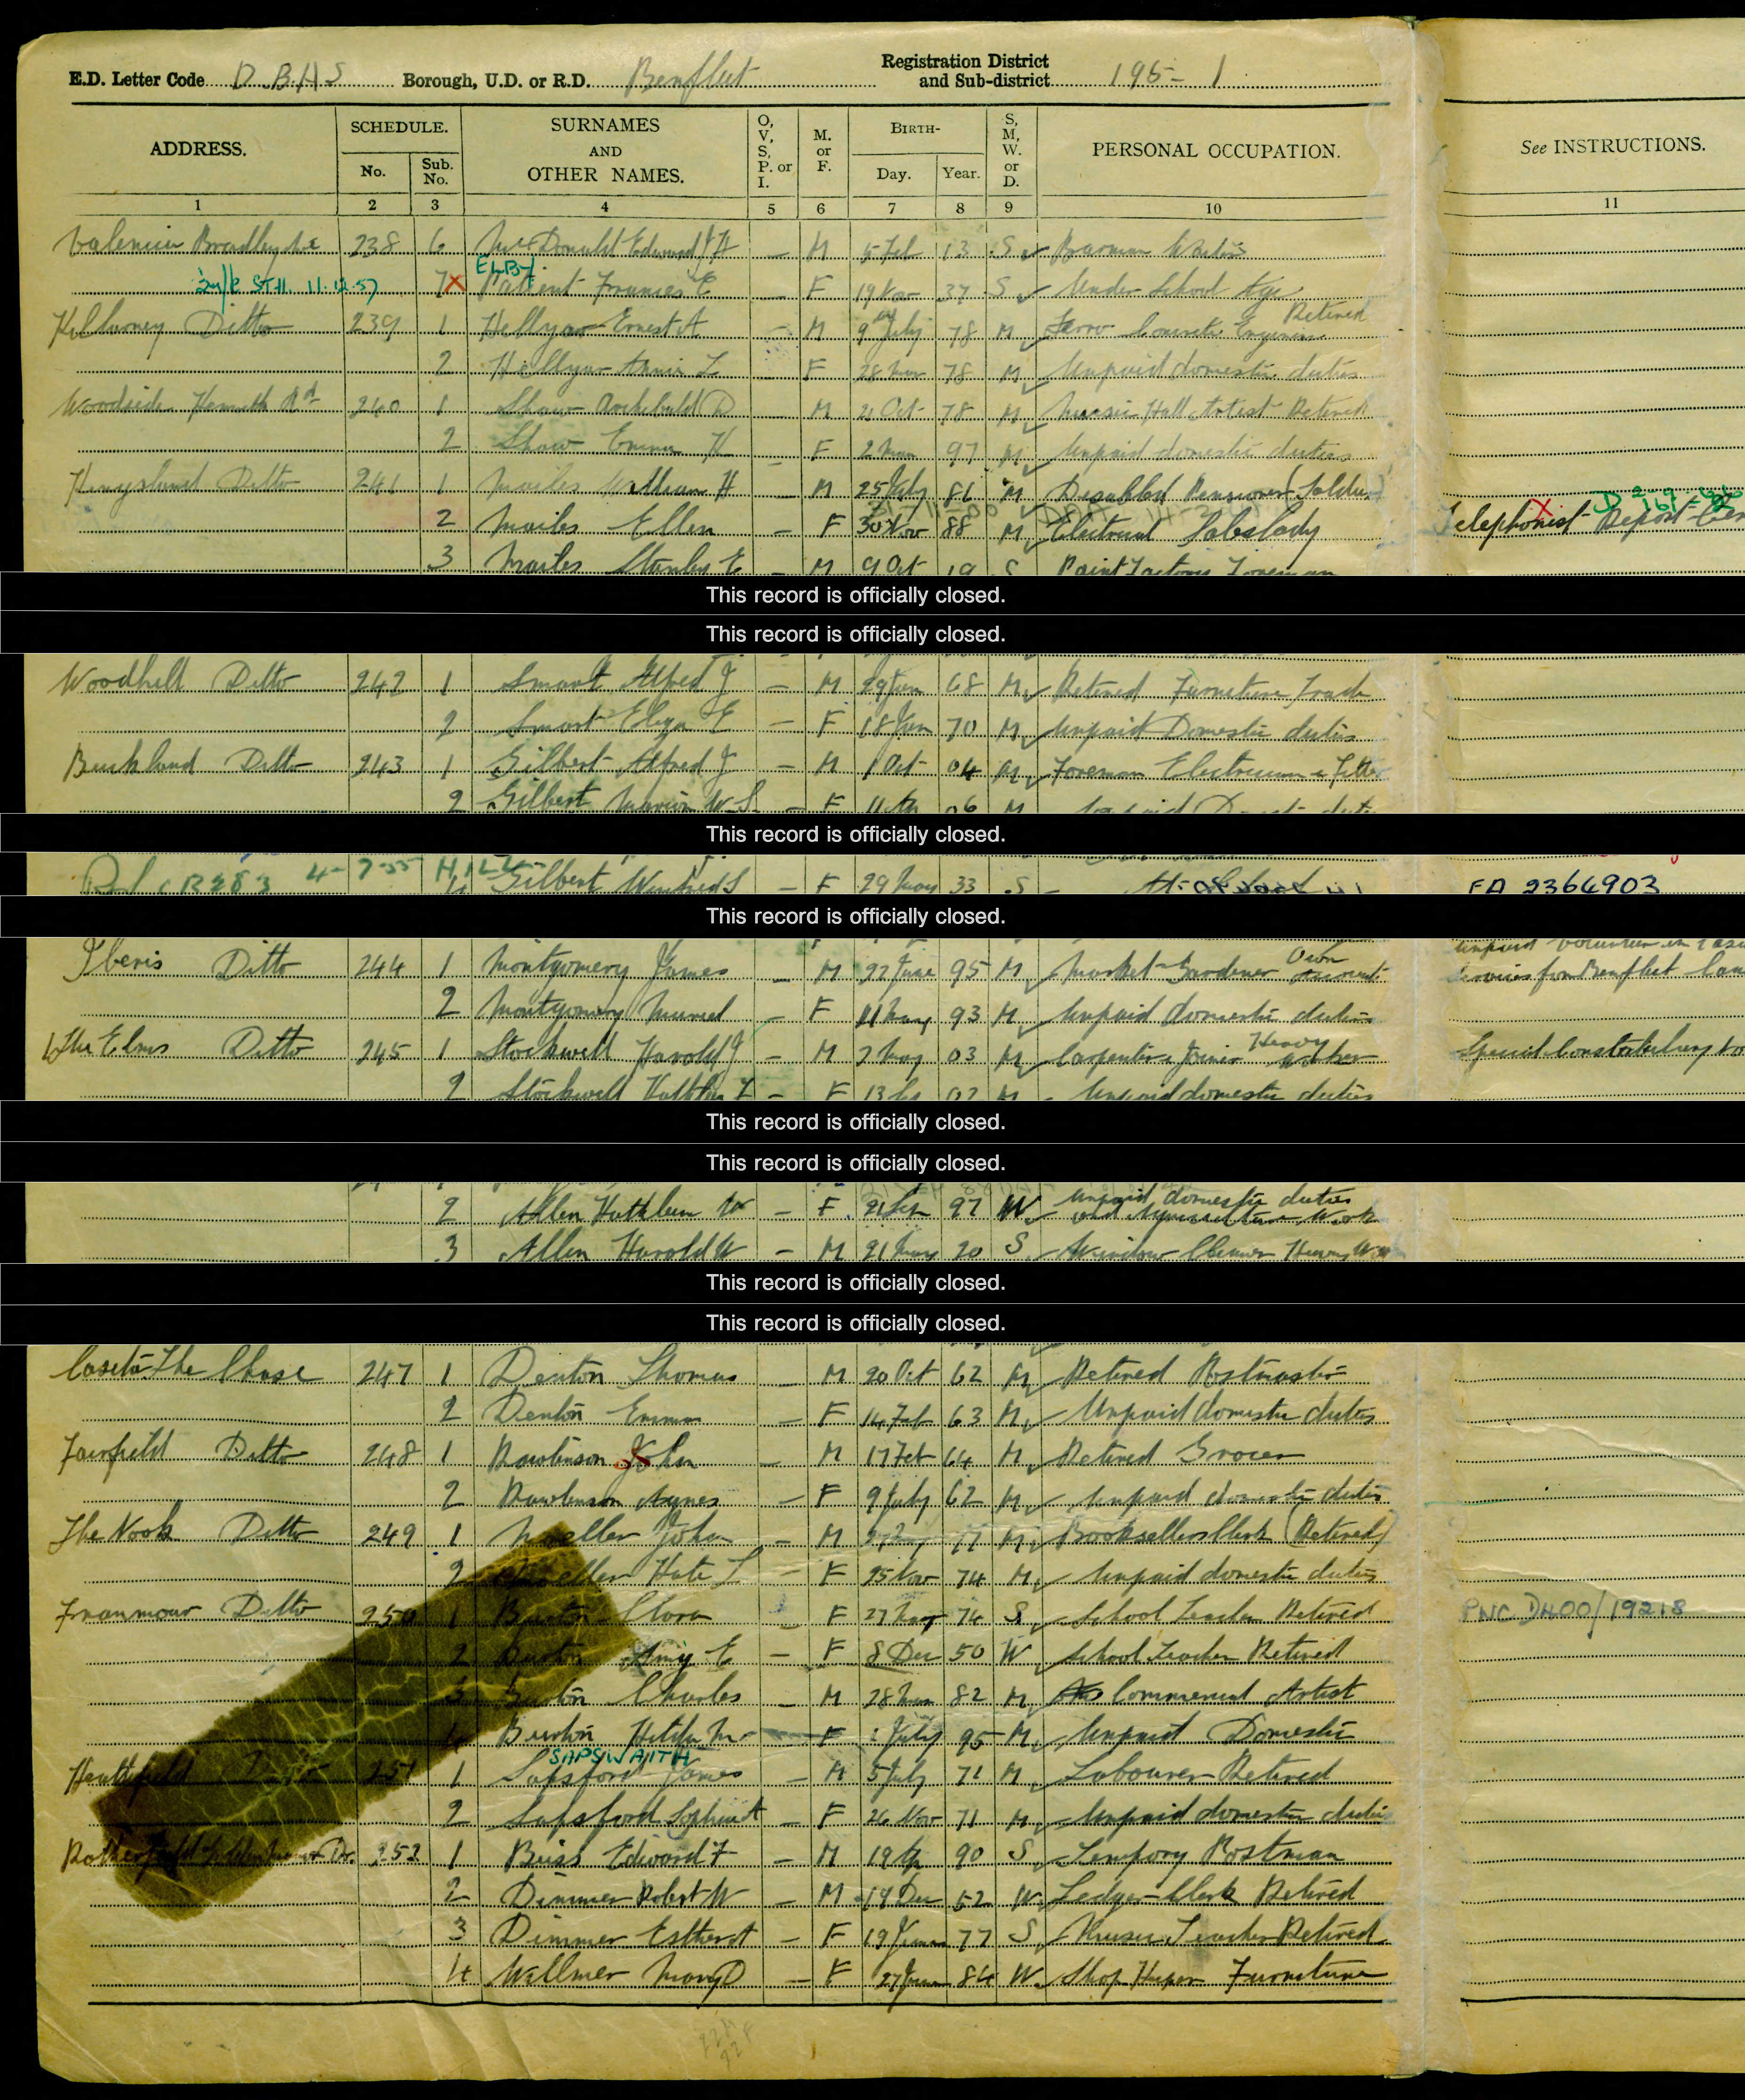 E.D. Letter Code D.B.H.S Borough, U.D. or R.D. Benfleet Registration District and Sub-district 195- 1
ADDRESS. SCHEDULE. No. Sub. No. SURNAMES AND OTHER NAMES. O, V, S, P. or I. M. or F. BIRTH- Day. Year. S, M, W. or D. PERSONAL OCCUPATION. See INSTRUCTIONS.
1 2 3 4 5 6 7 8 9 10 11
238 6 McDonald Edward M 5 Feb 13 S Barman
ELBY
11.12.57 7 Patient Frances E – F 19 37 S Under School Age
Retired
Killarney Ditto 239 1 Hellyar Ernest A – M 9 July 78 M Ferro Concrete Engineer
2 Hellyar Annie L F 28 78 M Unpaid domestic duties
Woodside Kenneth Rd 240 1 Shaw Archibald D – M 2 Oct 78 M Music Hall Artist Retired
2 Shaw Emma H – F 2 97 M Unpaid domestic duties
Ditto 241 1 Mailes William H – M 25 July 86 M Disabled Pensioner
2 Mailes Ellen – F 30 Nov 88 M Electrical Saleslady Telephonist Report
3 Mailes Stanley E – M 9 Oct 19 S Paint Factory Foreman
This record is officially closed.
This record is officially closed.
Woodhill Ditto 242 1 Smart Alfred J – M 29 Jun 68 M Retired Furniture Trade
2 Smart Eliza E – F 18 Jun 70 M Unpaid Domestic duties
Buckland Ditto 243 1 Gilbert Alfred J – M 1 Oct 04 M Foreman Electrician & Fitter
2 Gilbert Marion W.S. – F 11 06 M
This record is officially closed.
4-7-55 HILL
Gilbert Winifred S – F 29 May 33 S – At School FD 2364903
This record is officially closed.
unpaid volunteer in
Own
Iberis Ditto 244 1 Montgomery James – M 27 June 95 M Market Gardener Account Services for Benfleet
2 Montgomery Muriel – F 11 May 93 M Unpaid domestic duties
Heavy
The Elms Ditto 245 1 Stockwell Harold J – M 2 May 03 M Carpenter & Joiner Worker Special Constabulary
2 Stockwell F 13 M Unpaid domestic duties
This record is officially closed.
This record is officially closed.
Unpaid domestic duties
2 Allen Kathleen W – F 21 Sep 97 W and Work
3 Allen Harold W – M 21 May 20 S Window Cleaner Heavy
This record is officially closed.
This record is officially closed.
The Chase 247 1 Denton Thomas – M 20 Oct 62 M Retired Postmaster
2 Denton Emma – F 14 Feb 63 M Unpaid domestic duties
Fairfield Ditto 248 1 Rawlinson John – M 17 Feb 64 M Retired Grocer
2 Rawlinson Agnes – F 9 July 62 M Unpaid domestic duties
The Nook Ditto 249 1 Mueller John – M 77 M Booksellers Clerk (Retired)
2 Kate L – F 25 Nov 74 M Unpaid domestic duties
Ditto 250 1 Burton Clara F 27 May 74 S School Teacher Retired PNC DH00/19218
2 Burton Amy E – F 8 Dec 50 W School Teacher Retired
3 Burton Charles – M 28 82 M Commercial Artist
4 Burton Hilda M F July 95 M Unpaid Domestic
SAPSWAITH
Heathfield 251 1 Sapsford James – M 5 July 71 M Labourer Retired
2 Sapsford Sophia A – F 26 Nov 71 M Unpaid domestic duties
252 1 Biss Edward F – M 19 Ap 90 S Tempory Postman
2 Dimmer Robert W – M 19 Dec 52 W Ledger-Clerk Retired
3 Dimmer Esther A – F 19 June 77 S Music Teacher Retired
4 Wellmer Mary D – F 27 June 84 W Shop Keeper Furniture